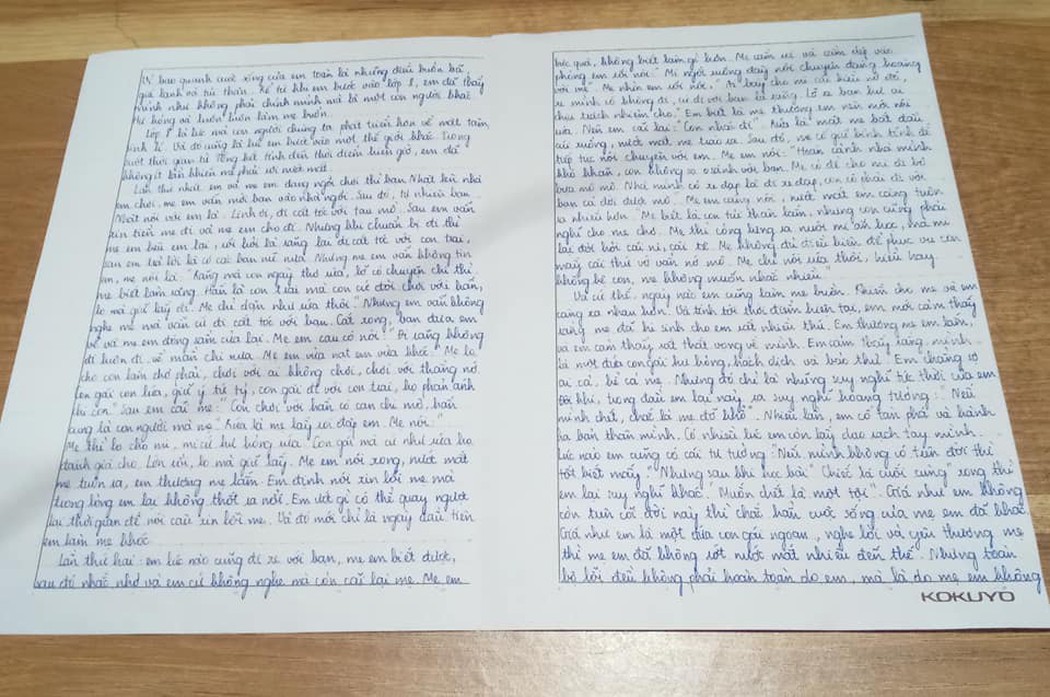 Vì bao quanh cuộc sống của em toàn là những điều buồn bã
giá lạnh và tủi thân. Kể từ khi em bước vào lớp 1, em đã thấy
mình như không phải chính mình mà là một con người khác
hư hỏng và luôn luôn làm mẹ buồn.
Lớp 1 là lúc mà con người chúng ta phát triển hơn về mặt tâm
sinh lí. Và đó cũng là lúc em bước vào một thế giới khác. Trong
suốt thời gian từ tổng kết tính đến thời điểm hiện giờ, em đã
không ít lần khiến mẹ phải rơi nước mắt.
Lần thứ nhất em và mẹ em đang ngồi chơi thì bạn Nhất lên nhà
em chơi, mẹ em vẫn mời bạn vào nhà ngồi. Sau đó, tự nhiên bạn
Nhất nói với em là: Linh ơi, đi cắt tóc với tau mồ. Sau em vẫn
xin tiền mẹ đi và mẹ em cho đi. Nhưng khi chuẩn bị đi thì
mẹ em kêu em lại, rồi hỏi là răng lại đi cắt tóc với con trai,
sau em trả lời là có các bạn nữ nữa. Nhưng mẹ em vẫn không tin
em, mẹ nói là: "Răng mà con ngây thơ rứa, lỡ có chuyện chi thì
mẹ biết làm răng. Hắn là con trai mà con cứ đòi chơi với hắn,
lo mà giữ lấy đi. Mẹ chỉ dặn như rứa thôi." Nhưng em vẫn không
nghe mẹ mà vẫn cứ đi cắt tóc với bạn. Cắt xong, bạn đưa em
về và mẹ em đóng sầm cửa lại. Mẹ em cau có nói: "Đi răng không
đi luôn đi, về mần chi nữa. Mẹ em vừa nạt em vừa khóc." Mẹ lo
cho con lắm chớ phải, chơi với ai không chơi, chơi với thằng nớ.
Con gái con lứa, giữ ý tứ tý, con gái đi với con trai, họ phản ánh
thì còn." Sau em cãi mẹ: "Con chơi với hắn có can chi mô, hắn
cũng là con người mà mẹ." Rứa là mẹ lấy roi đập em. Mẹ nói: "
Mẹ thì lo cho mi, mi cứ hư hỏng rứa. Con gái mà ai như rứa họ
đánh giá cho. Lớn rồi, lo mà giữ lấy. Mẹ em nói xong, nước mắt
mẹ tuôn ra, em thương mẹ lắm. Em định nói xin lỗi mẹ mà
trong lòng em lại không thốt ra nổi. Em ước gì có thể quay ngược
lại thời gian để nói câu xin lỗi mẹ. Và đó mới chỉ là ngày đầu tiên
em làm mẹ khóc.
Lần thứ hai: em lúc nào cũng đi xe với bạn, mẹ em biết được,
sau đó nhắc nhở và em cứ không nghe mà còn cãi lại mẹ. Mẹ em
bức quá, không biết làm gì luôn. Mẹ em rủ và cầm dép vào
phòng em rồi nói: "Mi ngồi xuống đây nói chuyện đàng hoàng
với mẹ". Mẹ nhìn em rồi nói: "Ai bày cho mi cái kiểu nớ đó,
xe mình có không đi, cứ đi với bạn là răng. Lỡ xe bạn hư ai
chịu trách nhiệm cho." Em biết là mẹ thương em nên mới nói
rứa. Nên em cãi lại: "Con nhác đi". Rứa là mắt mẹ bắt đầu
cúi xuống, nước mắt mẹ trào ra. Sau đó, mẹ cố giữ bình tĩnh để
tiếp tục nói chuyện với em. Mẹ em nói: "Hoàn cảnh nhà mình
khó khăn, con không so sánh với bạn. Mẹ có để cho mi đi bộ
bữa mô mô. Nhà mình có xe đạp là đi xe đạp, con có phải đi với
bạn cả đời được mô." Mẹ em càng nói, nước mắt em càng tuôn
ra nhiều hơn. "Mẹ biết là con tủi thân lắm, nhưng con cũng phải
nghĩ cho mẹ chớ. Mẹ thì còng lưng ra nuôi mi ăn học, mà mi
lại đòi hỏi cái ni, cái tê. Mẹ không đủ điều kiện để phục vụ con
mấy cái thứ vớ vẩn nớ mô. Mẹ chỉ nói rứa thôi, hiểu hay
không kệ con, mẹ không muốn nhắc nhiều."
Và cứ thế, ngày nào em cũng làm mẹ buồn. Khiến cho mẹ và em
càng xa nhau hơn. Và tính tới thời điểm hiện tại, em mới cảm thấy
rằng mẹ đã hi sinh cho em rất nhiều thứ. Em thương mẹ em lắm,
và em cảm thấy rất thất vọng về mình. Em cảm thấy rằng, mình
là một đứa con gái hư hỏng, hách dịch và báo thủ. Em chẳng có
ai cả, kể cả mẹ. Nhưng đó chỉ là những suy nghĩ tức thời của em
Đôi khi, trong đầu em lại nảy ra suy nghĩ hoang tưởng: "Nếu
mình chết, chắc là mẹ đỡ khổ". Nhiều lần, em cố tàn phá và hành
hạ bản thân mình. Có nhiều lúc em còn lấy dao rạch tay mình.
Lúc nào em cũng có cái tư tưởng "Nếu mình không có trên đời thì
tốt biết mấy." Nhưng sau khi học bài "Chiếc lá cuối cùng" xong thì
em lại suy nghĩ khác. "Muốn chết là một tội". Giá như em không
còn trên cõi đời này thì chắc hẳn cuộc sống của mẹ em đã khác.
Giá như em là một đứa con gái ngoan, nghe lời và yêu thương mẹ
thì mẹ em đã không rớt nước mắt nhiều đến thế. Nhưng toàn
bộ lỗi đều không phải hoàn toàn do em, mà là do mẹ em không
KOKUYO